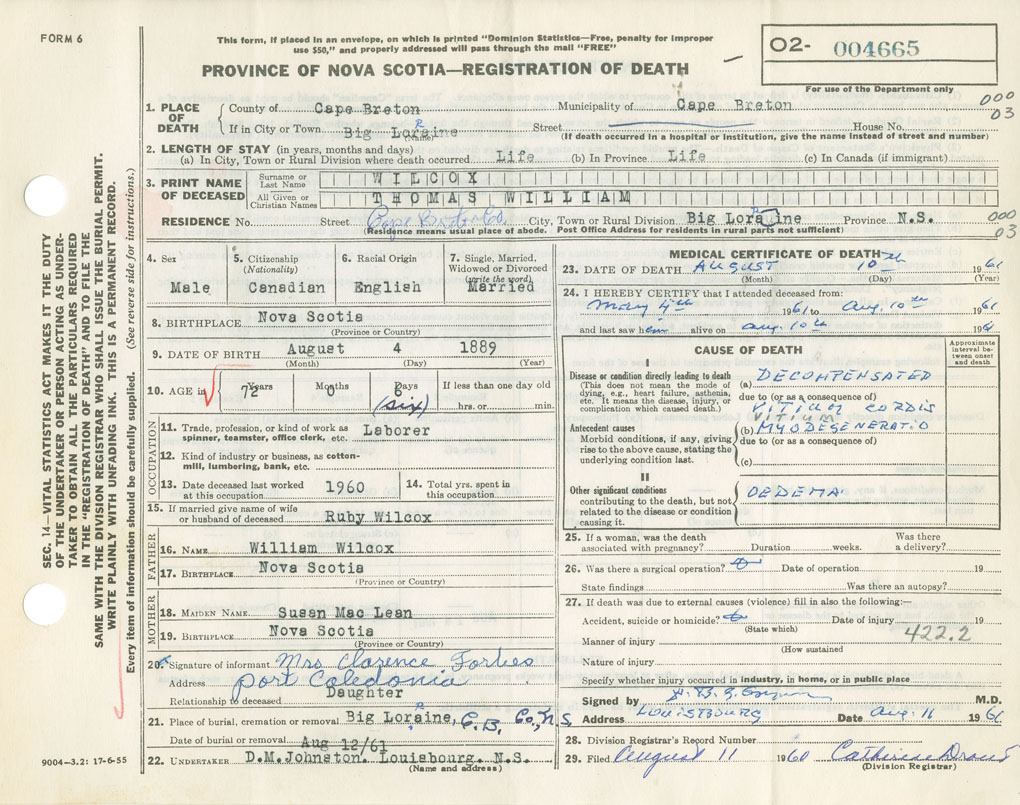 FORM 6
This form, if placed in an envelope, on which is printed "Dominion Statistics—Free, penalty for improper
use $50," and properly addressed will pass through the mail "FREE"
O2- 004665
For use of the Department only
PROVINCE OF NOVA SCOTIA—REGISTRATION OF DEATH
000
03
1. PLACE OF DEATH
County of Cape Breton Municipality of Cape Breton
If in City or Town Big Loraine Street House No.
R
(Name) (If death occurred in a hospital or institution, give the name instead of street and number)
2. LENGTH OF STAY (in years, months and days)
(a) In City, Town or Rural Division where death occurred Life (b) In Province Life (c) In Canada (if immigrant)
3. PRINT NAME OF DECEASED
Surname or Last Name WILCOX
All Given or Christian Names THOMAS WILLIAM
RESIDENCE No. Street Cape Breton Co City, Town or Rural Division Big Loraine Province N.S.
(Residence means usual place of abode. Post Office Address for residents in rural parts not sufficient)
000
03
4. Sex Male
5. Citizenship (Nationality) Canadian
6. Racial Origin English
7. Single, Married, Widowed or Divorced (write the word) Married
8. BIRTHPLACE Nova Scotia
(Province or Country)
9. DATE OF BIRTH August 4 1889
(Month) (Day) (Year)
10. AGE in Years 72 Months 0 Days 6 (six) If less than one day old hrs. or min.
OCCUPATION
11. Trade, profession, or kind of work as spinner, teamster, office clerk, etc. Laborer
12. Kind of industry or business, as cotton-mill, lumbering, bank, etc.
13. Date deceased last worked at this occupation 1960
14. Total yrs. spent in this occupation
15. If married give name of wife or husband of deceased Ruby Wilcox
FATHER
16. NAME William Wilcox
17. BIRTHPLACE Nova Scotia
(Province or Country)
MOTHER
18. MAIDEN NAME Susan Mac Lean
19. BIRTHPLACE Nova Scotia
(Province or Country)
20. Signature of informant Mrs Clarence Forbes
Address Port Caledonia
Relationship to deceased Daughter
21. Place of burial, cremation or removal Big Loraine, C.B. Co., N.S.
R
Date of burial or removal Aug 12/61
22. UNDERTAKER D.M.Johnston. Louisbourg. N.S.
(Name and address)
MEDICAL CERTIFICATE OF DEATH
23. DATE OF DEATH AUGUST 10th 1961
(Month) (Day) (Year)
24. I HEREBY CERTIFY that I attended deceased from:
May 4th 1961 to Aug. 10th 61
and last saw him alive on Aug. 10th 196
CAUSE OF DEATH
Approximate interval between onset and death
I
Disease or condition directly leading to death
(This does not mean the mode of dying, e.g., heart failure, asthenia, etc. It means the disease, injury, or complication which caused death.)
(a) DECOMPENSATED
due to (or as a consequence of)
VITIUM CORDIS
VITIUM
Antecedent causes
Morbid conditions, if any, giving rise to the above cause, stating the underlying condition last.
(b) MYODEGENERATIO
due to (or as a consequence of)
(c)
II
Other significant conditions
contributing to the death, but not related to the disease or condition causing it.
OEDEMA
25. If a woman, was the death associated with pregnancy? Duration weeks. Was there a delivery?
26. Was there a surgical operation? Date of operation 19
State findings Was there an autopsy?
27. If death was due to external causes (violence) fill in also the following:—
Accident, suicide or homicide? Date of injury 19
(State which)
422.2
Manner of injury
(How sustained
Nature of injury
Specify whether injury occurred in industry, in home, or in public place
Signed by M.D.
Address LOUISBOURG Date Aug. 11 1961
28. Division Registrar's Record Number
29. Filed August 11 1960 Catherine
(Division Registrar)
SEC. 14—VITAL STATISTICS ACT MAKES IT THE DUTY
OF THE UNDERTAKER OR PERSON ACTING AS UNDER-
TAKER TO OBTAIN ALL THE PARTICULARS REQUIRED
IN THE "REGISTRATION OF DEATH" AND TO FILE THE
SAME WITH THE DIVISION REGISTRAR WHO SHALL ISSUE THE BURIAL PERMIT.
WRITE PLAINLY WITH UNFADING INK. THIS IS A PERMANENT RECORD.
Every item of information should be carefully supplied. (See reverse side for instructions.)
9004-3.2: 17-6-55